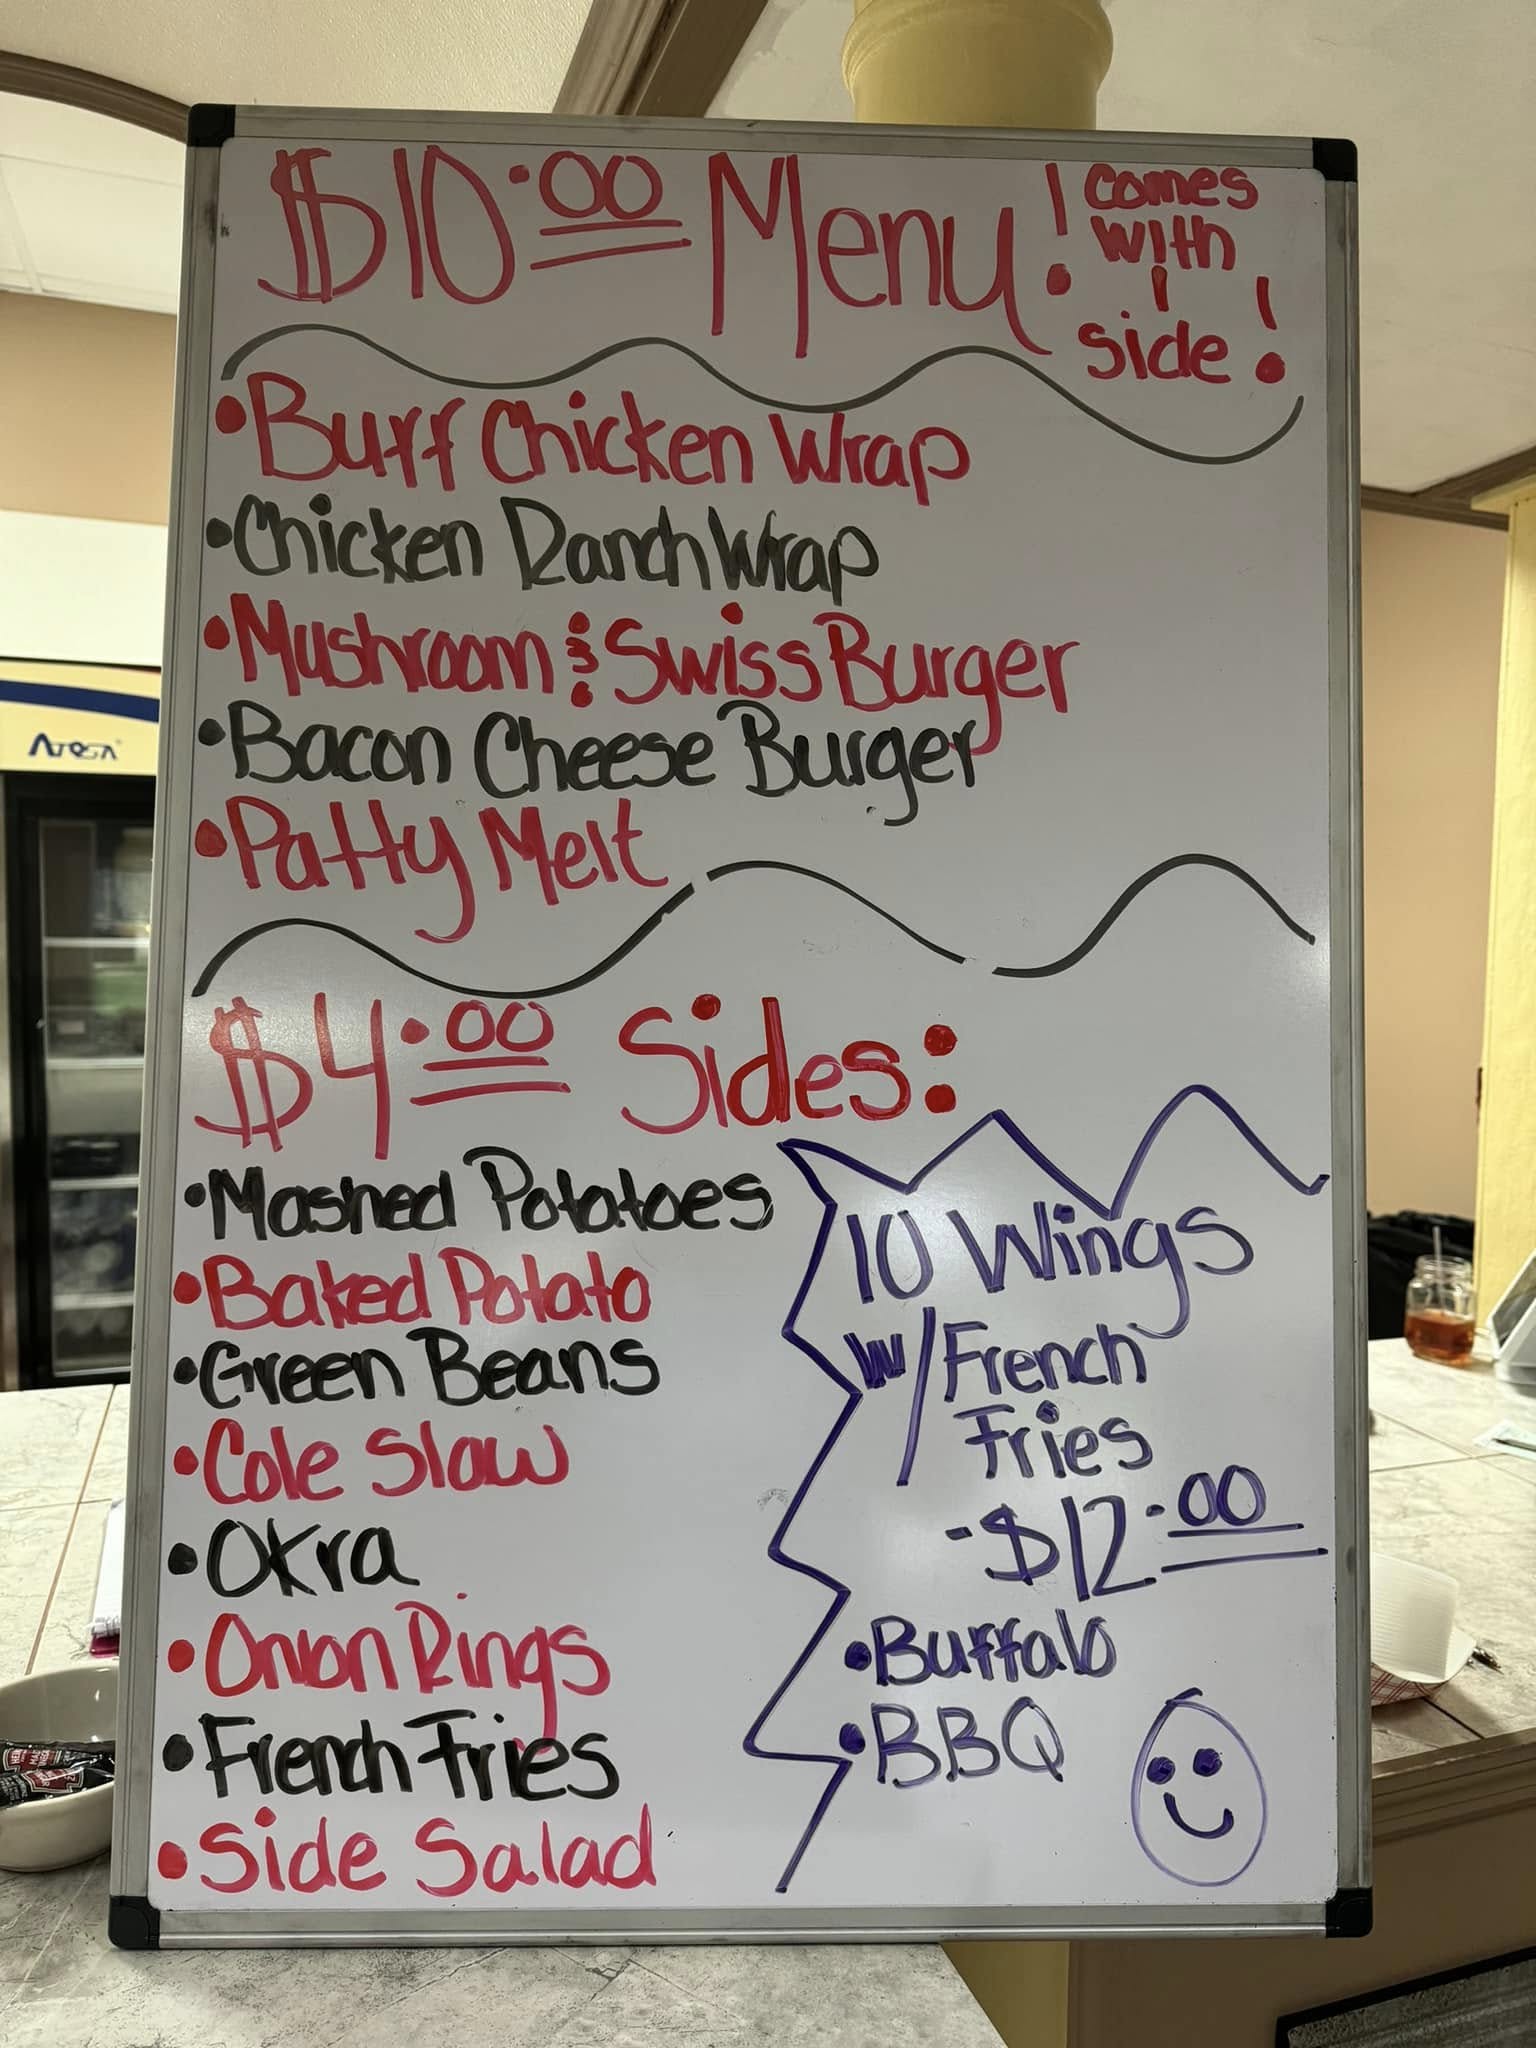 $10.00 Menu! comes with 1 side!
• Buff Chicken Wrap
• Chicken Ranch Wrap
• Mushroom & Swiss Burger
• Bacon Cheese Burger
• Patty Melt
$4.00 Sides:
• Mashed Potatoes
• Baked Potato
• Green Beans
• Cole Slaw
• Okra
• Onion Rings
• French Fries
• Side Salad
10 Wings
w/ French
Fries
- $12.00
• Buffalo
• BBQ